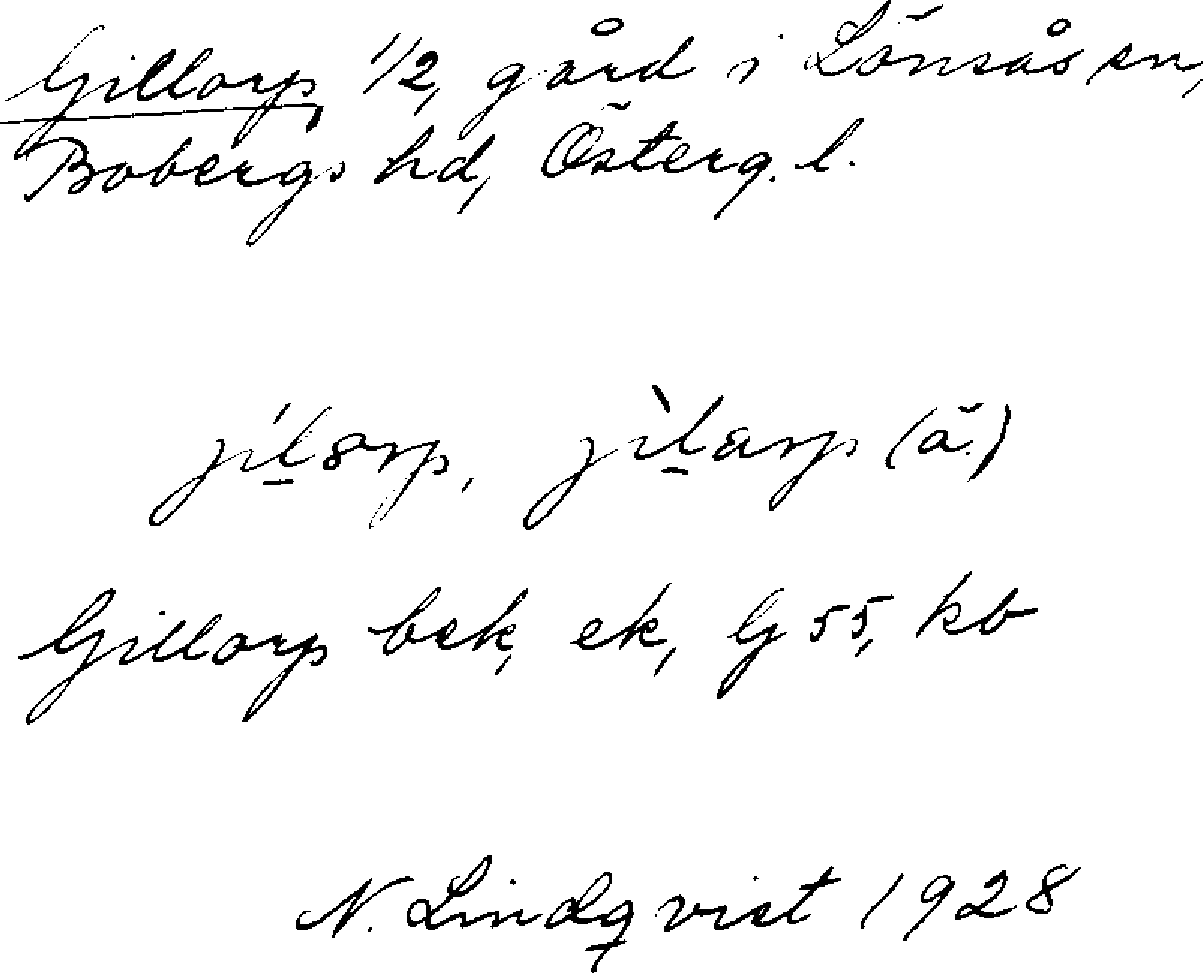 Gillorp, 1/2, gård i Lönsås sn,
Bobergs hd, Österg. l.
jíl̲orp, jìl̲arp (ä.)
Gillorp bek, ek, G 55, kb
N. Lindqvist 1928